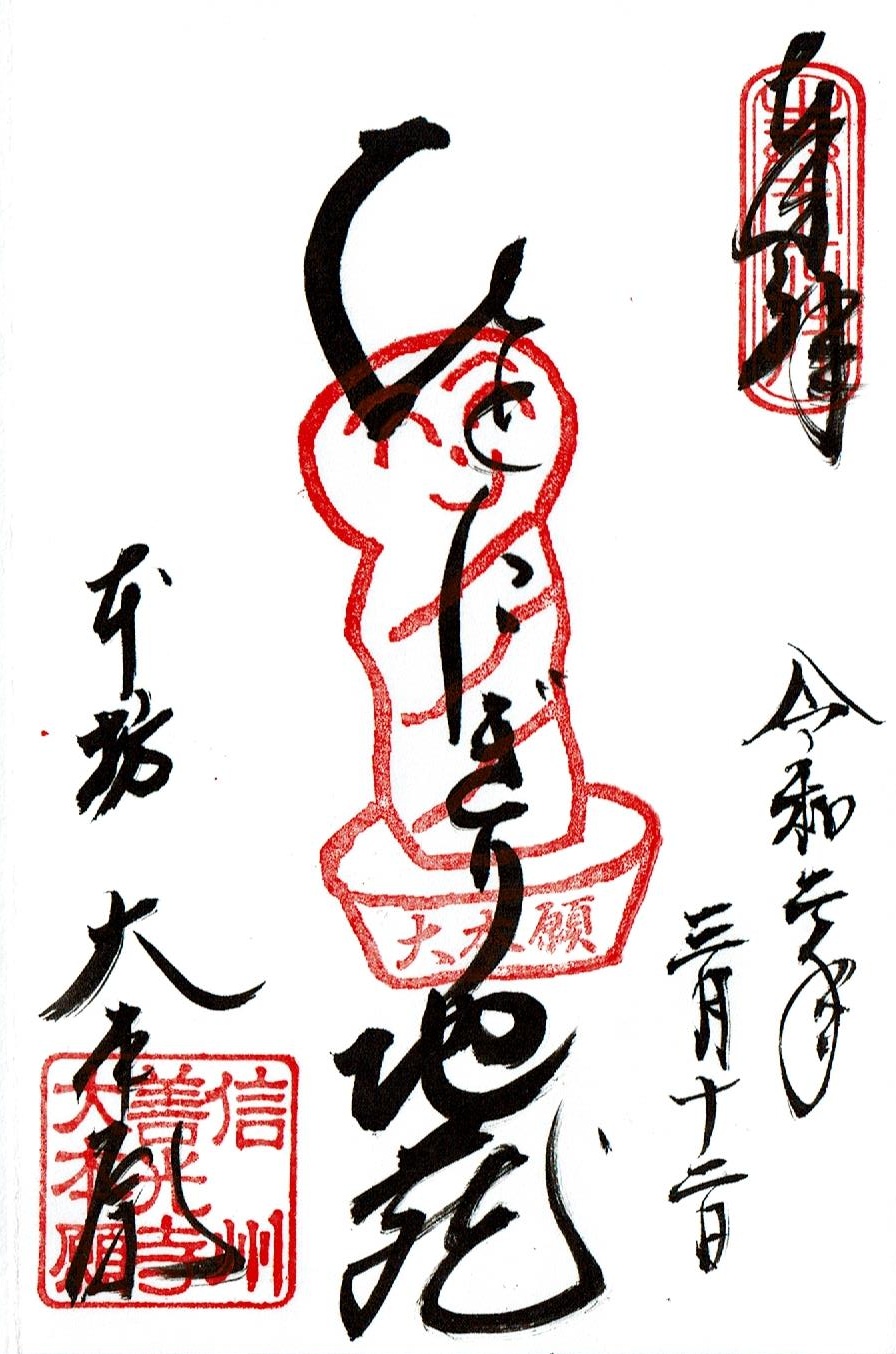 奉拝
令和六年
三月十二日
ひとにぎり地蔵
大本願
本坊 大本願
信州
善光寺
大本願